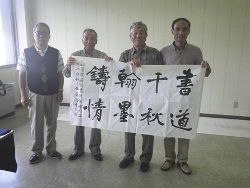 書道千秋
翰墨鑄情